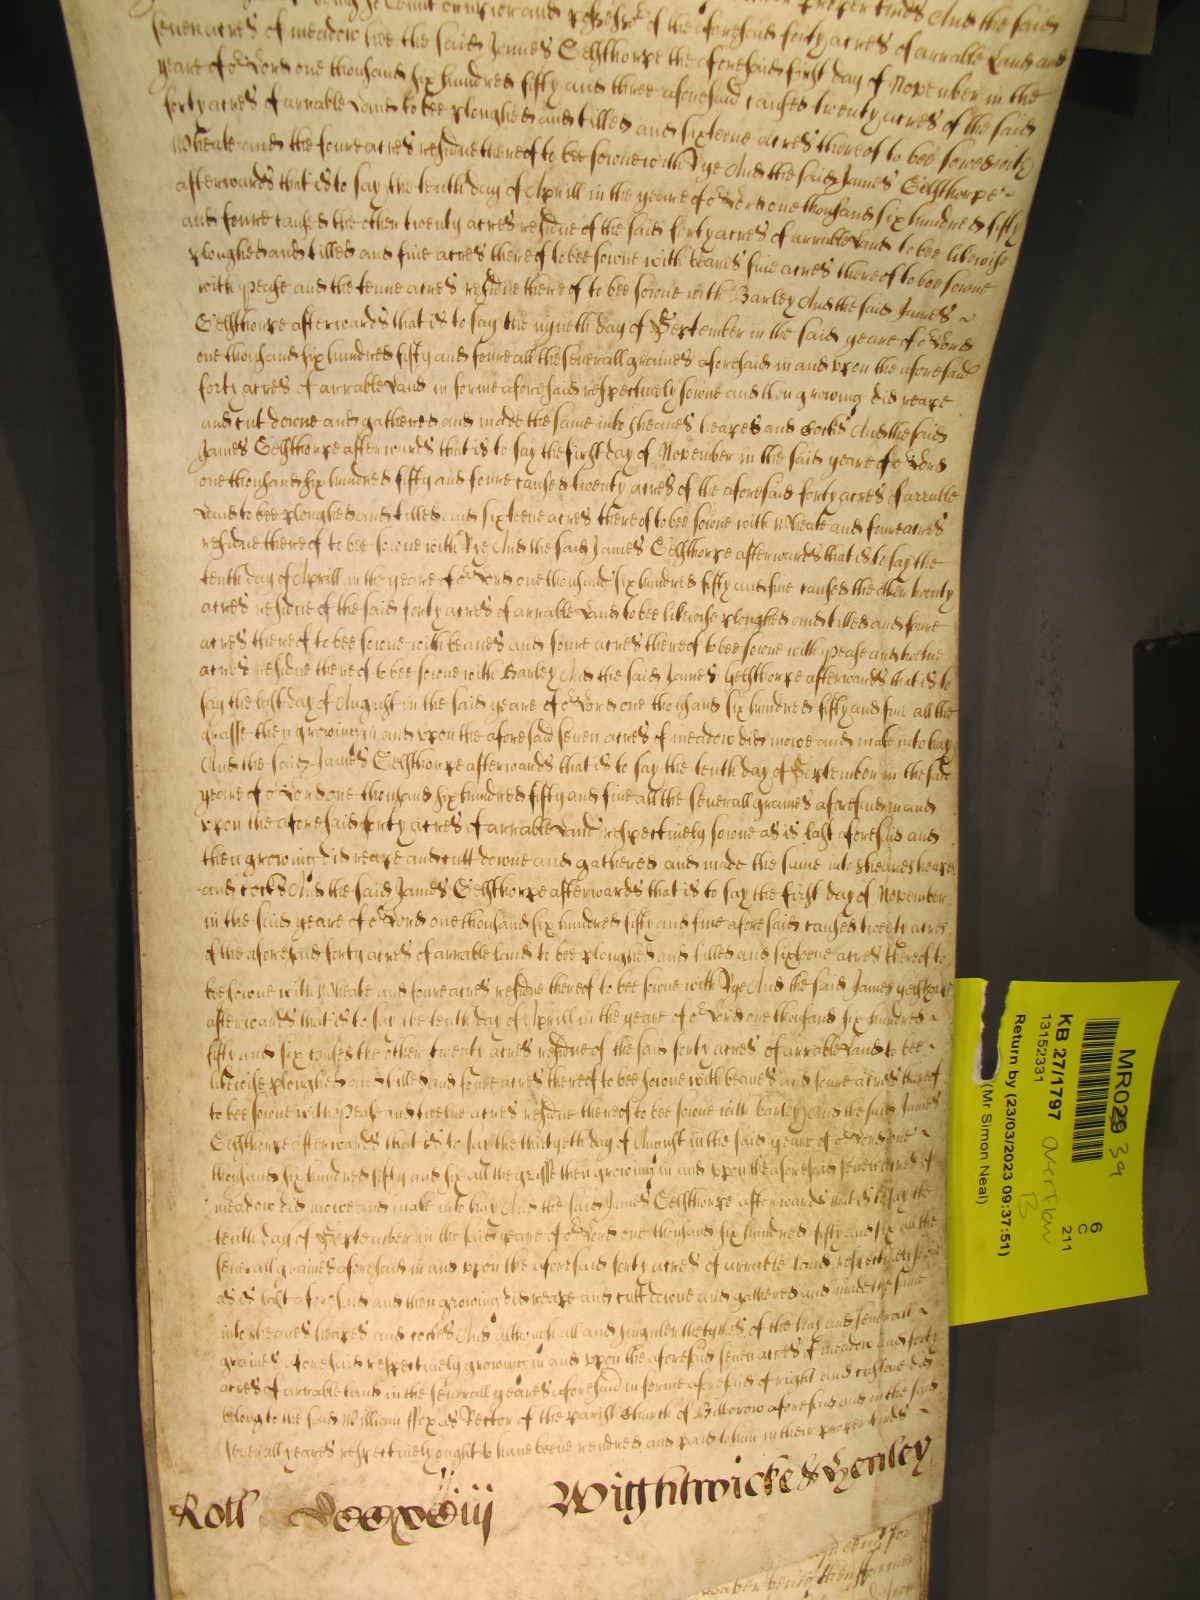 And the said
seven acres of meadow hee the said James Gelsthorpe the aforesaid first day of November in the
yeare of or Lord one thousand six hundred fifty and three aforesaid caused twenty acres of the said
forty acres of arrable Land to bee ploughed and tilled and sixteene acres thereof to bee sowed with
Wheate and the foure acres residue thereof to bee sowne with Rye And the said James Gelsthorpe
afterwards that is to say the tenth day of Aprill in the yeare of or Lord one thousand six hundred fifty
and foure caused the other twenty acres residue of the said forty acres of arrable Land to bee likewise
ploughed and tilled and five acres thereof to bee sowne with beanes five acres thereof to bee sowne
with pease and the tenne acres residue thereof to bee sowne with Barley And the said James
Gelsthorpe afterwards that is to say the nyneth day of September in the said yeare of or Lord
one thousand six hundred fifty and foure all the severall graines aforesaid in and upon the aforesaid
forty acres of arrable Land in forme aforesaid respectively sowne and then growing did reape
and cut downe and gathered and made the same into sheaves heapes and Cocks And the said
James Gelsthorpe afterwards that is to say the first day of November in the said yeare of or Lord
one thousand six hundred fifty and foure caused twenty acres of the aforesaid forty acres of arrable
Land to bee ploughed and tilled and sixteene acres thereof to bee sowne with Wheate and foure acres
residue thereof to bee sowne with Rye And the said James Gelsthorpe afterwards that is to say the
tenth day of Aprill in the yeare of or Lord one thousand six hundred fifty and five caused the other twenty
acres residue of the said forty acres of arrable Land to bee likewise ploughed and tilled and foure
acres thereof to bee sowne with beanes and foure acres thereof to bee sowne with pease and twelve
acres residue thereof to bee sowne with Barley And the said James Gelsthorpe afterwards that is to
say the last day of August in the said yeare of or Lord one thousand six hundred fifty and five all the
grasse then growing in and upon the aforesaid seven acres of meadow did mowe and make into hay
And the said James Gelsthorpe afterwards that is to say the tenth day of September in the said
yeare of or Lord one thousand six hundred fifty and five all the severall graines aforesaid in and
upon the aforesaid forty acres of arrable Land respectively sowne as is last aforesaid and
then growing did reape and cutt downe and gathered and made the same into sheaves heapes
and cocks And the said James Gelsthorpe afterwards that is to say the first day of November
in the said yeare of or Lord one thousand six hundred fifty and five aforesaid caused twenty acres
of the aforesaid forty acres of arrable land to bee ploughed and tilled and sixteene acres thereof to
bee sowne with Wheate and foure acres residue thereof to bee sowne with Rye And the said James Gelsthorpe
afterwards that is to say the tenth day of Aprill in the yeare of or Lord one thousand six hundred
fifty and six caused the other twenty acres residue of the said forty acres of arrable Land to bee
likewise ploughed and tilled and foure acres thereof to bee sowne with beanes and foure acres thereof
to bee sowne with pease and twelve acres residue thereof to bee sowne with barley And the said James
Gelsthorpe afterwards that is to say the thirtyeth day of August in the said yeare of or Lord one
thousand six hundred fifty and six all the grasse then growing in and upon the aforesaid seven acres of
meadow did mowe and make into hay And the said James Gelsthorpe afterwards that is to say the
tenth day of September in the said yeare of or Lord one thousand six hundred fifty and six all the
severall graines aforesaid in and upon the aforesaid forty acres of arrable land respectively sowne
as is last aforesaid and then growing did reape and cutt downe and gathered and made the same
into sheaves heapes and cockes And although all and singuler the tythes of the hay and severall
graines aforesaid respectively growing in and upon the aforesaid seven acres of meadow and forty
acres of arrable land in the severall yeares aforesaid in forme aforesaid of right and custome did
belong to the said William ffox as Rector of the parish Church of aforesaid and in the said
severall yeares respectively ought to have beene rendred and paid to him in their proper kinds
Roll Wightwicke & Henley
MR029 39
6
C
211
KB 27/1797
13152331
overflow
B
Return by (23/03/2023 09:37:51)
(Mr Simon Neal)